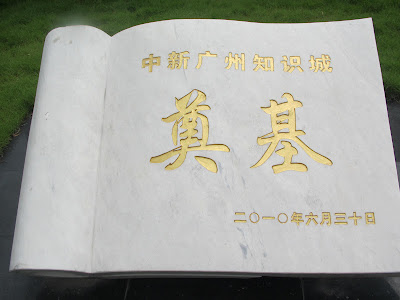 中新广州知识城
奠基
二〇一〇年六月三十日